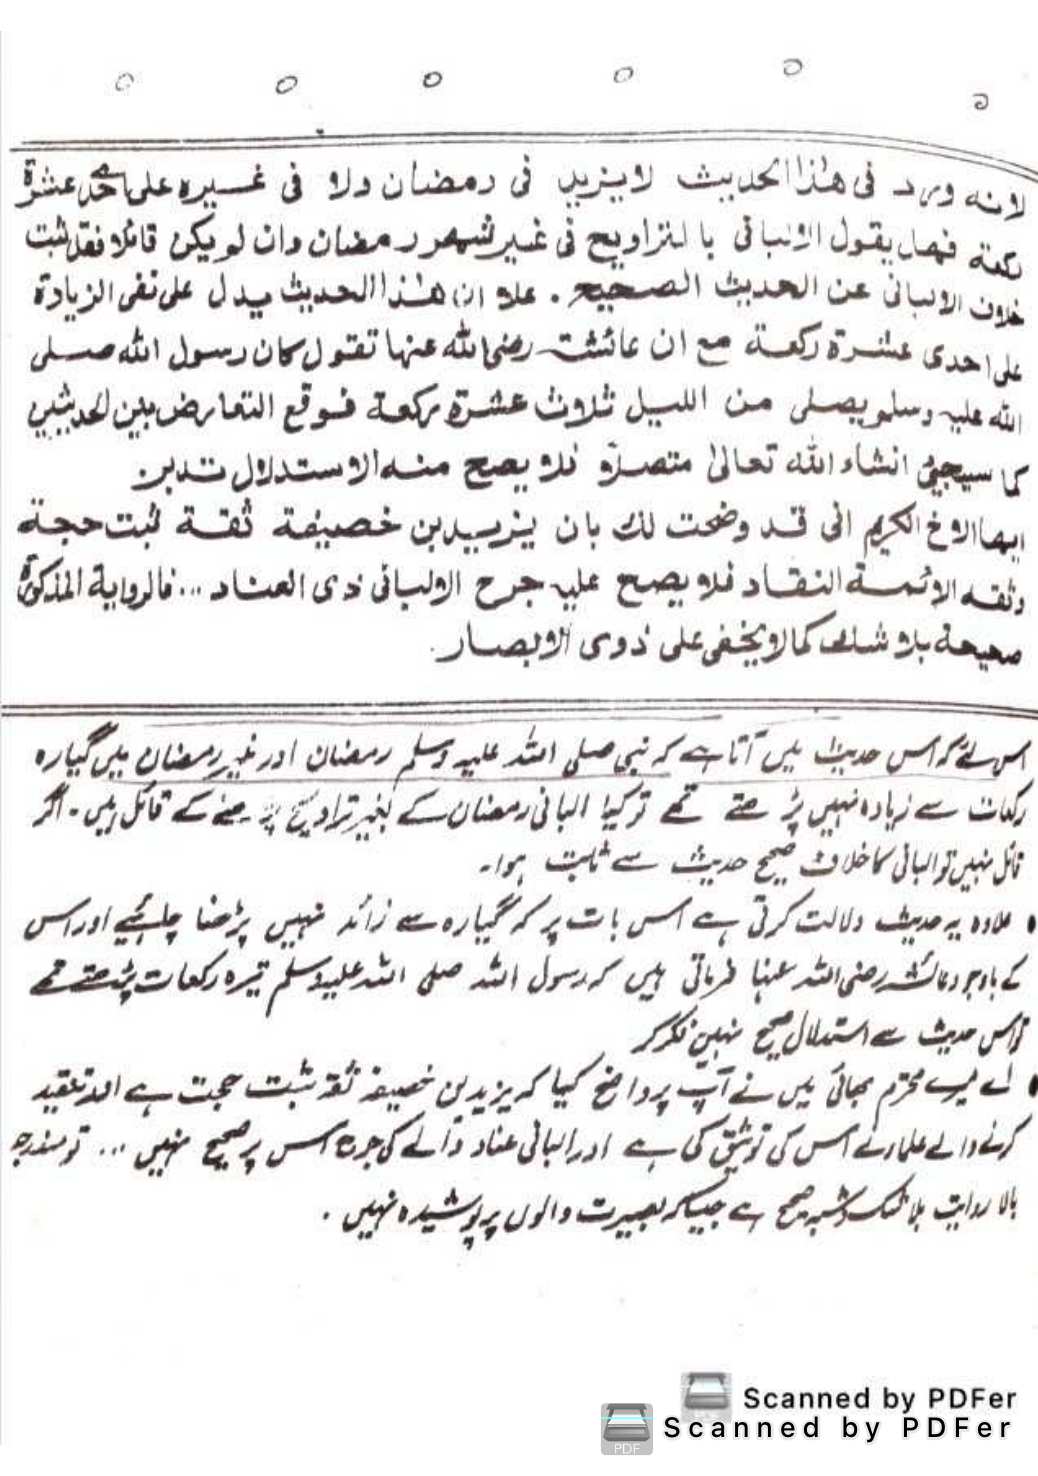 لانه ورد فى هذا الحديث لا يزيد فى رمضان ولا فى غيره على احدى عشرة
ركعة فهل يقول الالبانى بالتراويح فى غير شهر رمضان وان لم يكن قائلا فقد ثبت
خلاف الالبانى عن الحديث الصحيح . علا ان هذا الحديث يدل على نفى الزيادة
على احدى عشرة ركعة مع ان عائشة رضى الله عنها تقول كان رسول الله صلى
الله عليه وسلم يصلى من الليل ثلاث عشرة ركعة فوقع التعارض بين الحديثين
كما سيجئ انشاء الله تعالىٰ متصلاً فلا يصح منه الاستدلال تدبر.
ايها الاخ الكريم انى قد وضحت لك بان يزيد بن خصيفة ثقة ثبت حجة
وثقه الائمة النقاد فلا يصح عليه جرح الالبانى ذى العناد ... فالرواية المذكورة
صحيحة بلا شك كما لا يخفى على ذوى الابصار.
اس لئے کہ اس حدیث میں آتا ہے کہ نبی صلی اللہ علیہ وسلم رمضان اور غیر رمضان میں گیارہ
رکعات سے زیادہ نہیں پڑھتے تھے تو کیا البانی رمضان کے بغیر تراویح پڑھنے کے قائل ہیں۔ اگر
قائل نہیں تو البانی کا خلاف صحیح حدیث سے ثابت ہوا۔
• علاوہ یہ حدیث دلالت کرتی ہے اس بات پر کہ گیارہ سے زائد نہیں پڑھنا چاہئیے اور اس
کے باوجود عائشہ رضی اللہ عنہا فرماتی ہیں کہ رسول اللہ صلی اللہ علیہ وسلم تیرہ رکعات پڑھتے تھے
تو اس حدیث سے استدلال صحیح نہیں فکر کر
• اے میرے محترم بھائی میں نے آپ پر واضح کیا کہ یزید بن خصیفہ ثقہ ثبت حجت ہے اور تنقید
کرنے والے علماء نے اس کی توثیق کی ہے اور البانی عناد والے کی جرح اس پر صحیح نہیں ... تو مندرجہ
بالا روایت بلا شک وشبہ صحیح ہے جیسا کہ بصیرت والوں پر پوشیدہ نہیں .
Scanned by PDFer
Scanned by PDFer
PDF